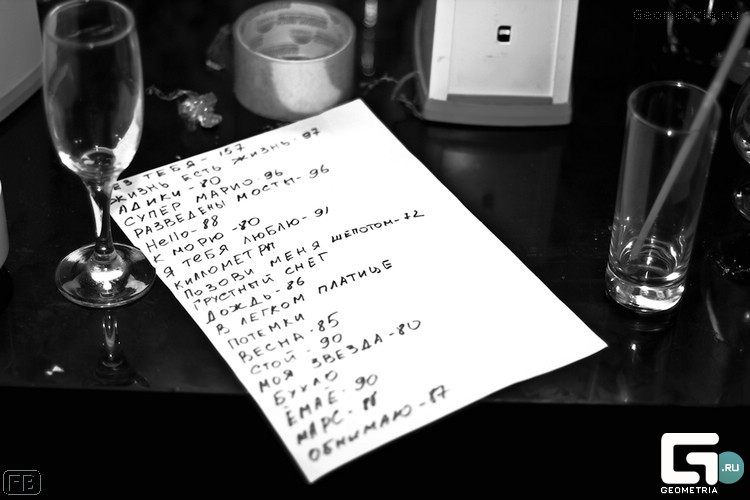 Geometria.ru
БЕЗ ТЕБЯ - 157
ЖИЗНЬ ЕСТЬ ЖИЗНЬ - 97
АДИКИ - 80
СУПЕР МАРИО - 96
РАЗВЕДЕНЫ МОСТЫ - 96
Hello - 88
К МОРЮ - 80
Я ТЕБЯ ЛЮБЛЮ - 91
КИЛЛОМЕТРЫ
ПОЗОВИ МЕНЯ ШЕПОТОМ - 72
ГРУСТНЫЙ СНЕГ
ДОЖДЬ - 86
В ЛЕГКОМ ПЛАТИЦЕ
ПОТЕМКИ
ВЕСНА - 85
СТОЙ - 90
МОЯ ЗВЕЗДА - 80
БУХЛО
ЁМАЁ - 90
МАРС - 88
ОБНИМАЮ - 87
FB
G .RU
GEOMETRIA